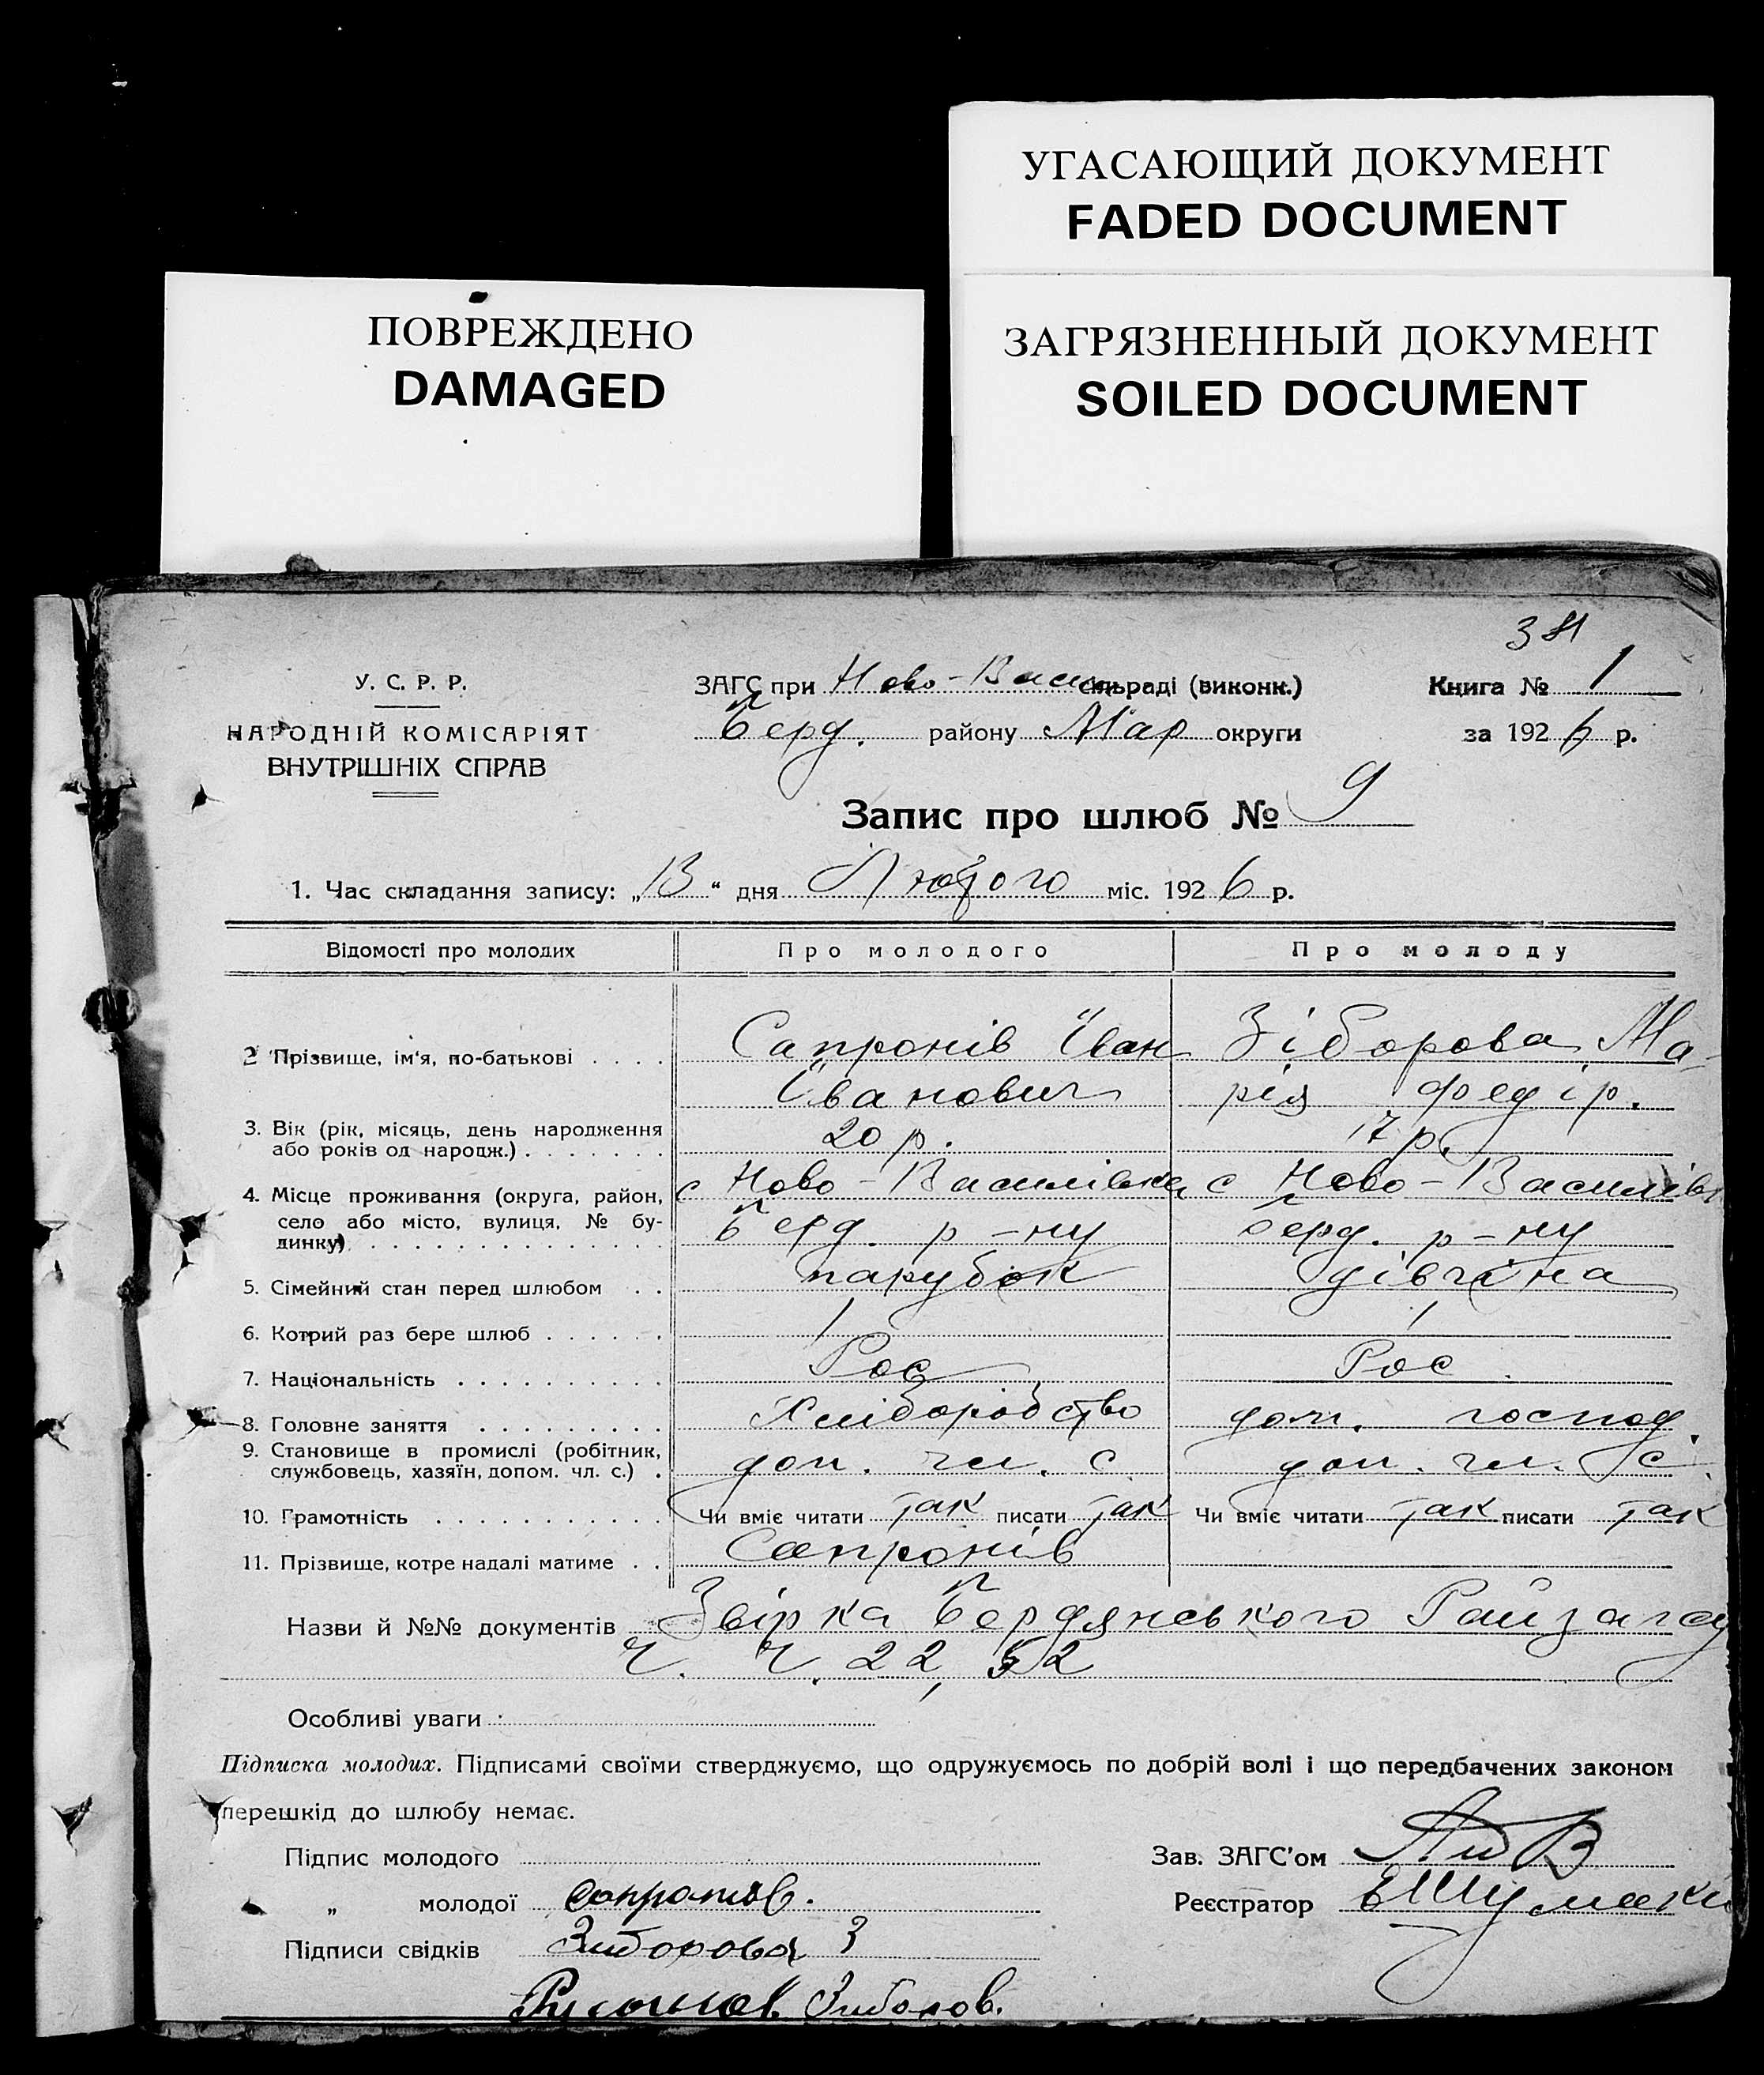 УГАСАЮЩИЙ ДОКУМЕНТ
FADED DOCUMENT
ПОВРЕЖДЕНО
DAMAGED
ЗАГРЯЗНЕННЫЙ ДОКУМЕНТ
SOILED DOCUMENT
У. С. Р. Р.
НАРОДНІЙ КОМІСАРІЯТ
ВНУТРІШНІХ СПРАВ
ЗАГС при Ново-Васил сільраді (виконк.)
Берд. району Мар округи
Книга № 1
за 1926 р.
Запис про шлюб № 9
1. Час складання запису: „13“ дня Лютого міс. 1926 р.
Відомості про молодих Про молодого Про молоду
2 Прізвище, ім'я, по-батькові . . . . Сапронів Іван Зіборова Ма-
Іванович рія Федір.
3. Вік (рік, місяць, день народження
або років од народж.) . . . . . . . 20 р. 17 р.
4. Місце проживання (округа, район, с Ново-Василівка с Ново-Василівк
село або місто, вулиця, № бу- Берд. р-ну Берд. р-ну
динку) . . . . . . . . . . . . . .
5. Сімейний стан перед шлюбом . . парубок дівчина
6. Котрий раз бере шлюб . . . . . . 1 1
7. Національність . . . . . . . . . . Рос Рос.
8. Головне заняття . . . . . . . . . Хліборобство дом. господ.
9. Становище в промислі (робітник,
службовець, хазяїн, допом. чл. с.) . доп. чл. с. доп. чл. с.
10. Грамотність . . . . . . . . . . . Чи вміє читати так писати так Чи вміє читати так писати так
11. Прізвище, котре надалі матиме . . Сапронів
Назви й №№ документів Звірка Бердянського Райзагсу
Ч. Ч. 22, 52
Особливі уваги
Підписка молодих. Підписами своїми стверджуємо, що одружуємось по добрій волі і що передбачених законом
перешкід до шлюбу немає.
Підпис молодого
Зав. ЗАГС'ом
„ молодої Сапронов.
Реєстратор
Підписи свідків Зиборова З
Зиборов.